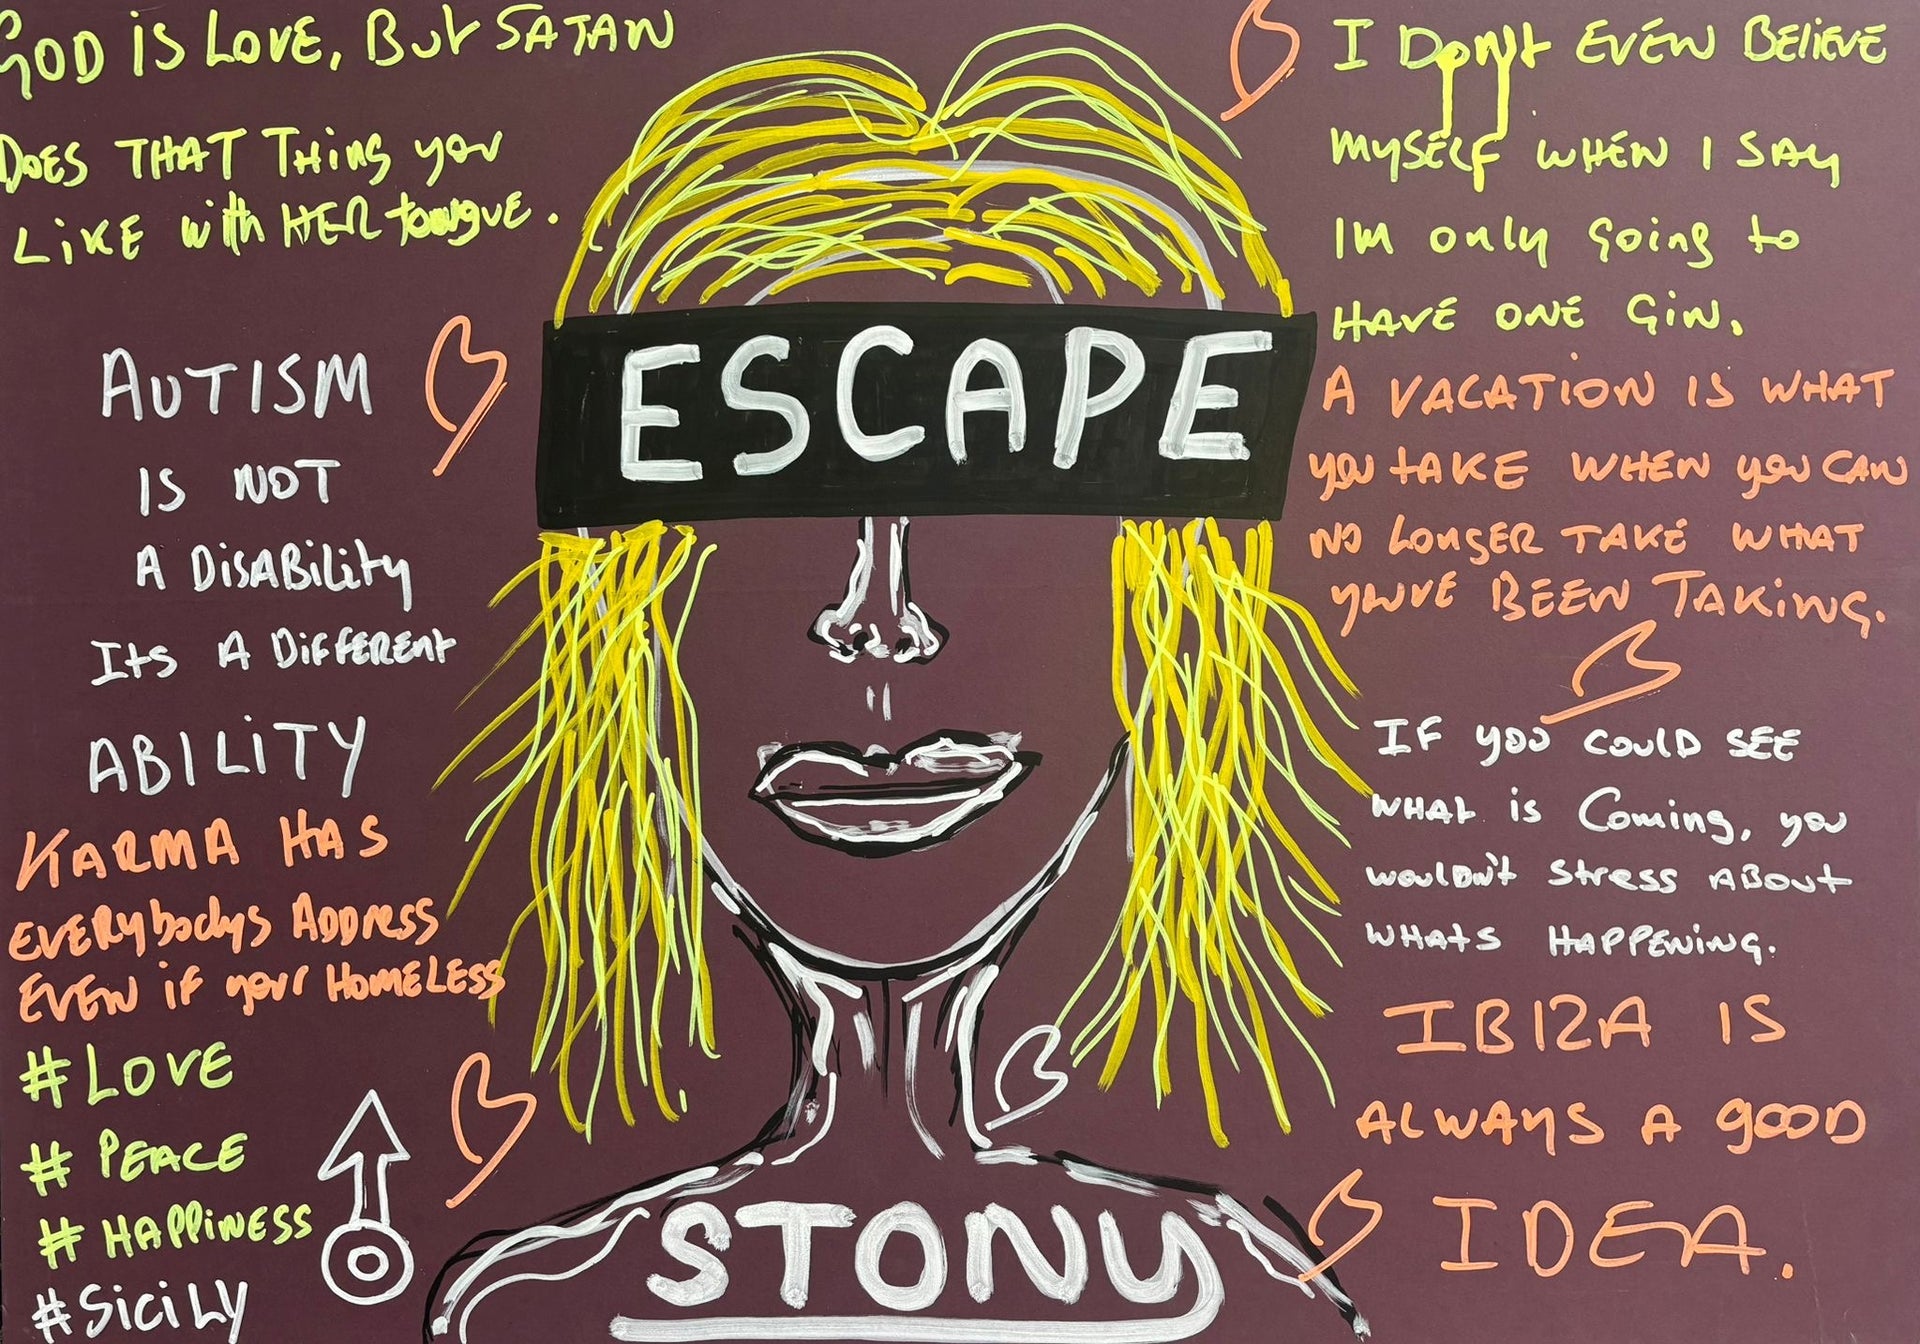 GOD IS LOVE, BUT SATAN
DOES THAT THING you
LIKE with HER tongue.
AUTISM
IS NOT
A DISABility
Its A DiFFERENt
ABILITY
KARMA HAS
EVERybodys ADDRESS
EVEN iF your HOMELESS
#LOVE
# PEACE
# HAPPINESS
#SiciLY
ESCAPE
STONY
I DONt EVEN BEliEVE
MYSELF WHEN I SAY
IM only going to
HAVE ONE GiN.
A VACATION IS WHAT
you tAKE WHEN you CAN
NO LONGER TAKE WHAT
YOUVE BEEN TAKING.
IF you COULD SEE
WHAt is Coming, you
wouLDN't stress ABOut
WHAtS HAPPENING.
IBIZA IS
ALWAYS A gOOD
IDEA.